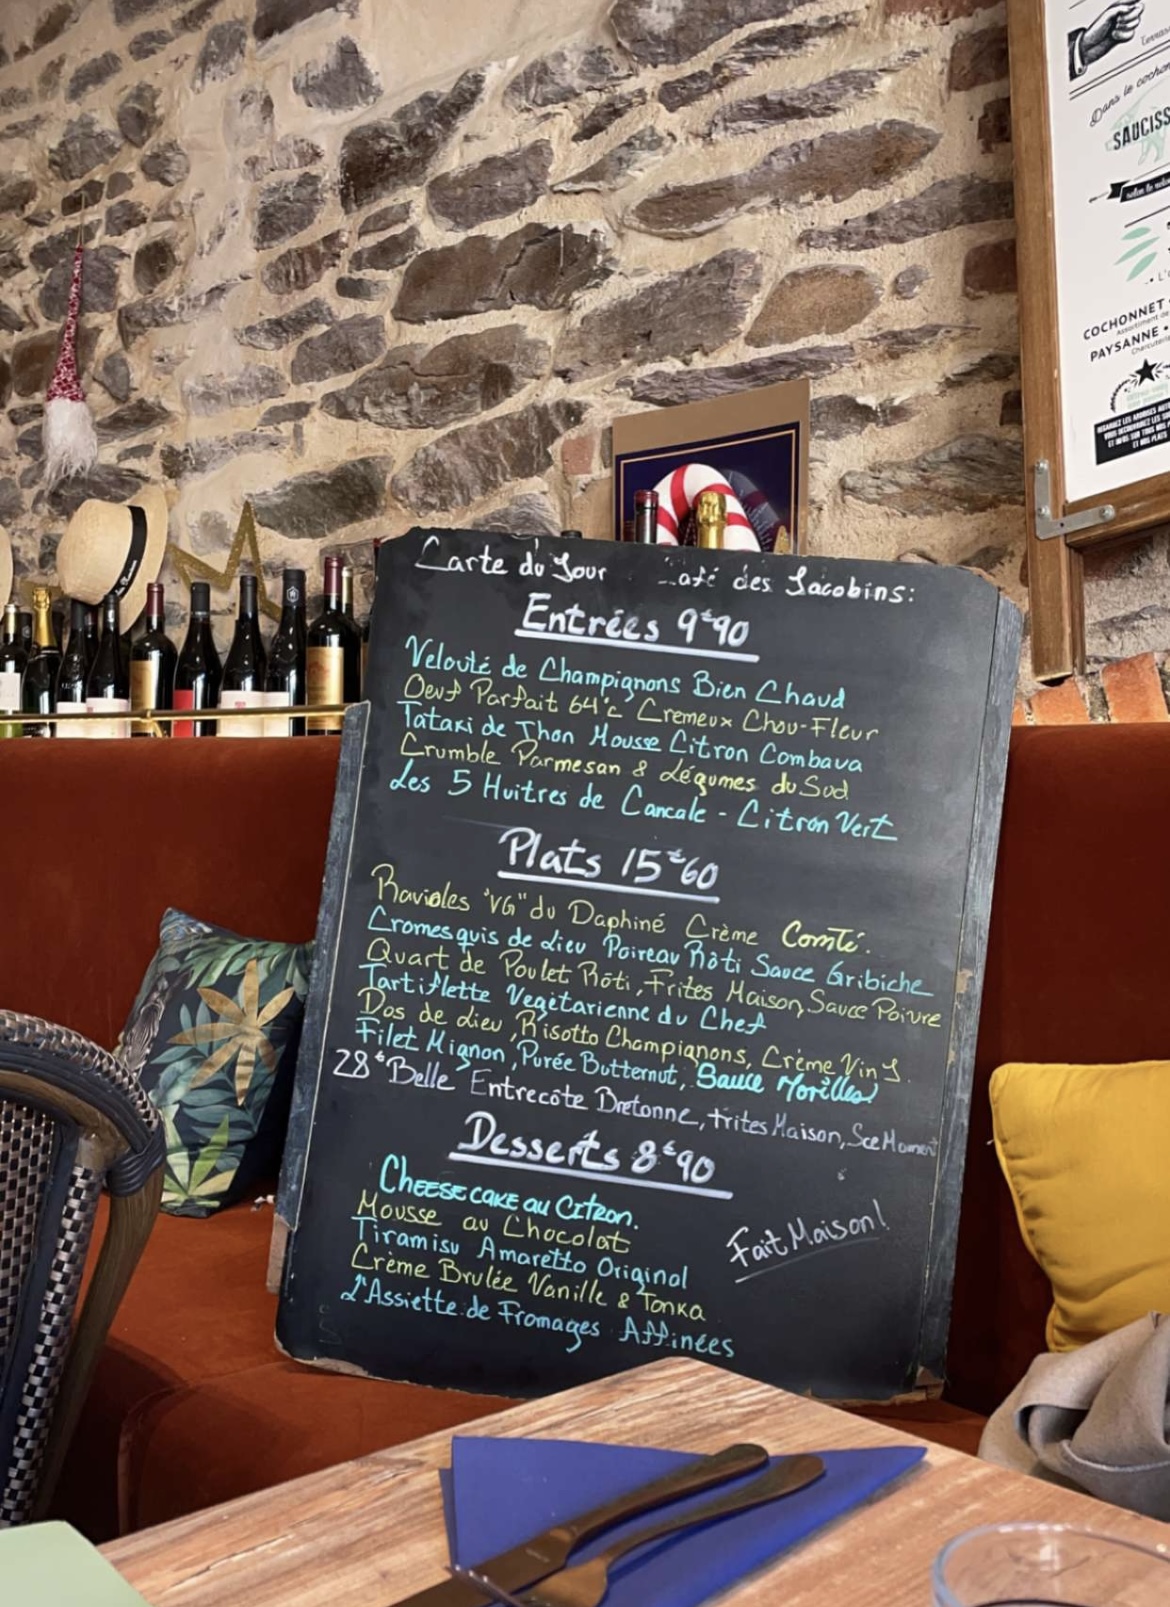 Carte du Jour afé des Jacobins:
Entrées 9€90
Velouté de Champignons Bien Chaud
Oeuf Parfait 64°c Cremeux Chou-Fleur
Tataki de Thon Mousse Citron Combava
Crumble Parmesan & Légumes du Sud
Les 5 Huitres de Cancale - Citron Vert
Plats 15€60
Ravioles "VG" du Daphiné Crème Comté.
Cromesquis de Lieu Poireau Rôti Sauce Gribiche
Quart de Poulet Rôti, Frites Maison, Sauce Poivre
Tartiflette Vegètarienne du Chef
Dos de Lieu, Risotto Champignons, Crème Vin J.
Filet Mignon, Purée Butternut, Sauce Morilles!
28€ Belle Entrecôte Bretonne, frites Maison, Sce
Desserts 8€90
CHEESECAKE AU CITRON.
Mousse au Chocolat
Tiramisu Amaretto Original
Crème Brulée Vanille & Tonka
L'Assiette de Fromages Affinées
Fait Maison!
Dans le cochon
SAUCISS
COCHONNET
Assortiment de
PAYSANNE •
Charcuterie